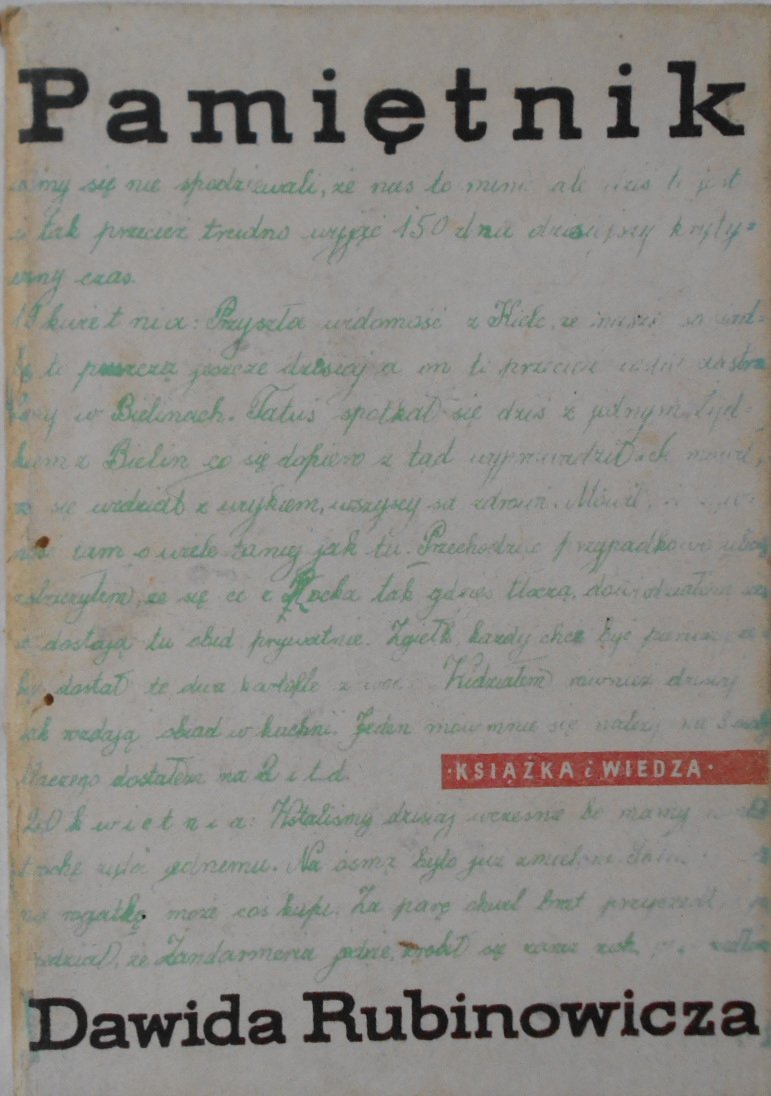 Pamiętnik
my się nie spodziewali, że nas to minie ale
tak przecież trudno wyjąć 150 dzisiejszy kryty-
czny czas.
19 kwietnia: Przyszła widomość z Kielc, że
puszczą jeszcze dzisiaj a on
w Bielinach. Tatuś spotkał się dziś z jednym żyd-
kiem z Bielin co się dopiero z tąd wyprowadził
że się widział z wujkiem, wszyscy są zdrowi. Mówił,
tam o wiele taniej jak tu. Przechodząc przypadkowo
zobaczyłem, że się co z Płocka tak gdzieś tłoczą, dowiedziałem
dostają tu obiad prywatnie. Zgiełk każdy chce być
dostał te dwa kartofle z Widziałem również dzisiaj
jak wydają obiad w kuchni. Jeden mówi mnie się należy na 3
dlaczego dostałem na 2 i t d.
·KSIĄŻKA i WIEDZA·
20 kwietnia: Wstaliśmy dzisiaj wcześnie bo mamy
trochę żyta jednemu. Na ósmą było już zmielone.
na rogatkę może coś kupi. Za parę chwil brat przyszedł
że żandarmeria jedzie, zrobił się zaraz
Dawida Rubinowicza